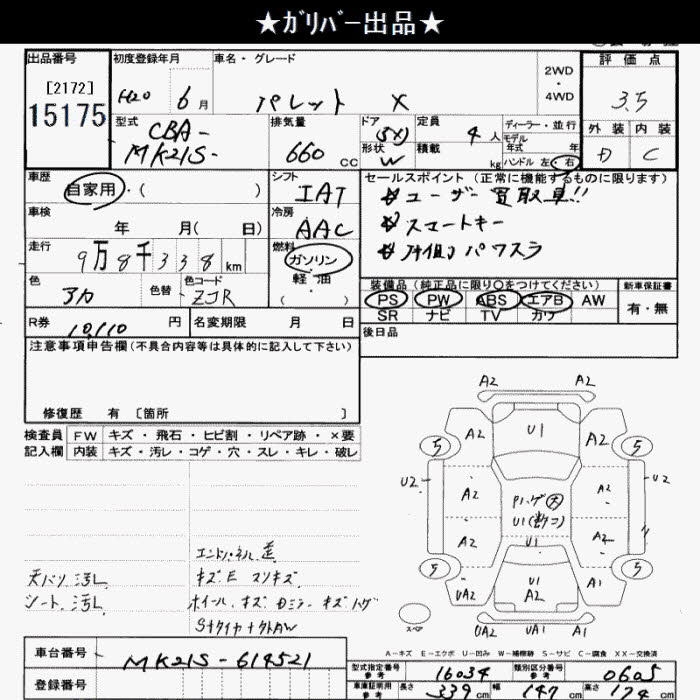 ★ｶﾞﾘﾊﾞｰ出品★
出品番号
[2172]
15175
初度登録年月
H20 6月
車名・グレード
パレット X
2WD
・
4WD
評価点
3.5
外装 内装
D C
型式
CBA-
MK21S-
排気量
660 CC
ドア
(5X)
形状
W
定員
4人
積載
kg
ディーラー・並行
モデル
年式 年
ハンドル 左・右
車歴
自家用・( )
シフト
IAT
車検
年 月( 日)
冷房
AAC
走行
9万8千338km
燃料
ガンリン
軽・油
( )
色
アカ
色替
色コード
ZJR
R券
10,110円
名変期限 月 日
セールスポイント (正常に機能するものに限ります)
ユーザー買取車!!
スマートキー
パワスラ
装備品(純正品に限り○をつけてください)
PS PW ABS エアB AW
SR ナビ TV カワ
新車保証書
有・無
後日品
注意事項申告欄(不具合内容等は具体的に記入して下さい)
修復歴 有 〔箇所 〕
検査員
記入欄
FW キズ・飛石・ヒビ割・リペア跡・×要
内装 キズ・汚レ・コゲ・穴・スレ・キレ・破レ
天バリ汚レ
シート汚レ
キズE スリキズ
ホイール キズ Dミラー キズハゲ
A2 A2
A2 U1 A2
5 5
U2 U2
A2 A2
U1
A2 U1 A2
5 5
UA2 U1 A1
A2
UA2 UA1 A1
スペア
A－キズ E－エクボ U－凹み W－補修跡 S－サビ C－腐食 XX－交換済
車台番号
MK21S-614521
登録番号
型式指定番号
参考
16034
類別区分番号
参考
0605
車庫証明用
参考
長さ 339cm 幅 147cm 高さ 174cm